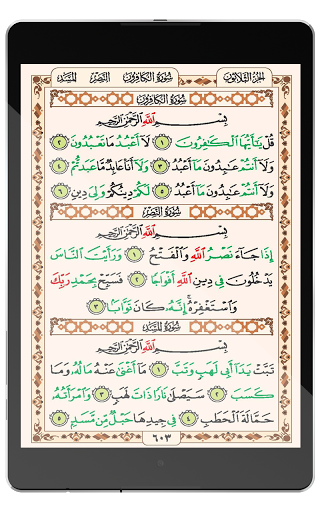 الجزء الثلاثون سورة الكافرون النصر المسد
سورة الكافرون
بِسْمِ اللَّهِ الرَّحْمَٰنِ الرَّحِيمِ
قُلْ يَٰٓأَيُّهَا ٱلْكَٰفِرُونَ ١ لَآ أَعْبُدُ مَا تَعْبُدُونَ ٢
وَلَآ أَنتُمْ عَٰبِدُونَ مَآ أَعْبُدُ ٣ وَلَآ أَنَا۠ عَابِدٌ مَّا عَبَدتُّمْ ٤
وَلَآ أَنتُمْ عَٰبِدُونَ مَآ أَعْبُدُ ٥ لَكُمْ دِينُكُمْ وَلِىَ دِينِ ٦
سورة النصر
بِسْمِ اللَّهِ الرَّحْمَٰنِ الرَّحِيمِ
إِذَا جَآءَ نَصْرُ ٱللَّهِ وَٱلْفَتْحُ ١ وَرَأَيْتَ ٱلنَّاسَ
يَدْخُلُونَ فِى دِينِ ٱللَّهِ أَفْوَاجًا ٢ فَسَبِّحْ بِحَمْدِ رَبِّكَ
وَٱسْتَغْفِرْهُ ۚ إِنَّهُۥ كَانَ تَوَّابًۢا ٣
سورة المسد
بِسْمِ اللَّهِ الرَّحْمَٰنِ الرَّحِيمِ
تَبَّتْ يَدَآ أَبِى لَهَبٍ وَتَبَّ ١ مَآ أَغْنَىٰ عَنْهُ مَالُهُۥ وَمَا
كَسَبَ ٢ سَيَصْلَىٰ نَارًا ذَاتَ لَهَبٍ ٣ وَٱمْرَأَتُهُۥ
حَمَّالَةَ ٱلْحَطَبِ ٤ فِى جِيدِهَا حَبْلٌ مِّن مَّسَدٍۭ ٥
٦٠٣